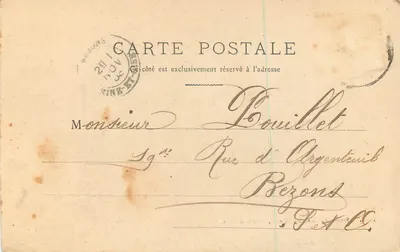 CARTE POSTALE
côté est exclusivement réservé à l'adresse
BEZONS
NOV
SEINE-ET-OISE
Monsieur Pouillet
Rue d'Argenteuil
Bezons